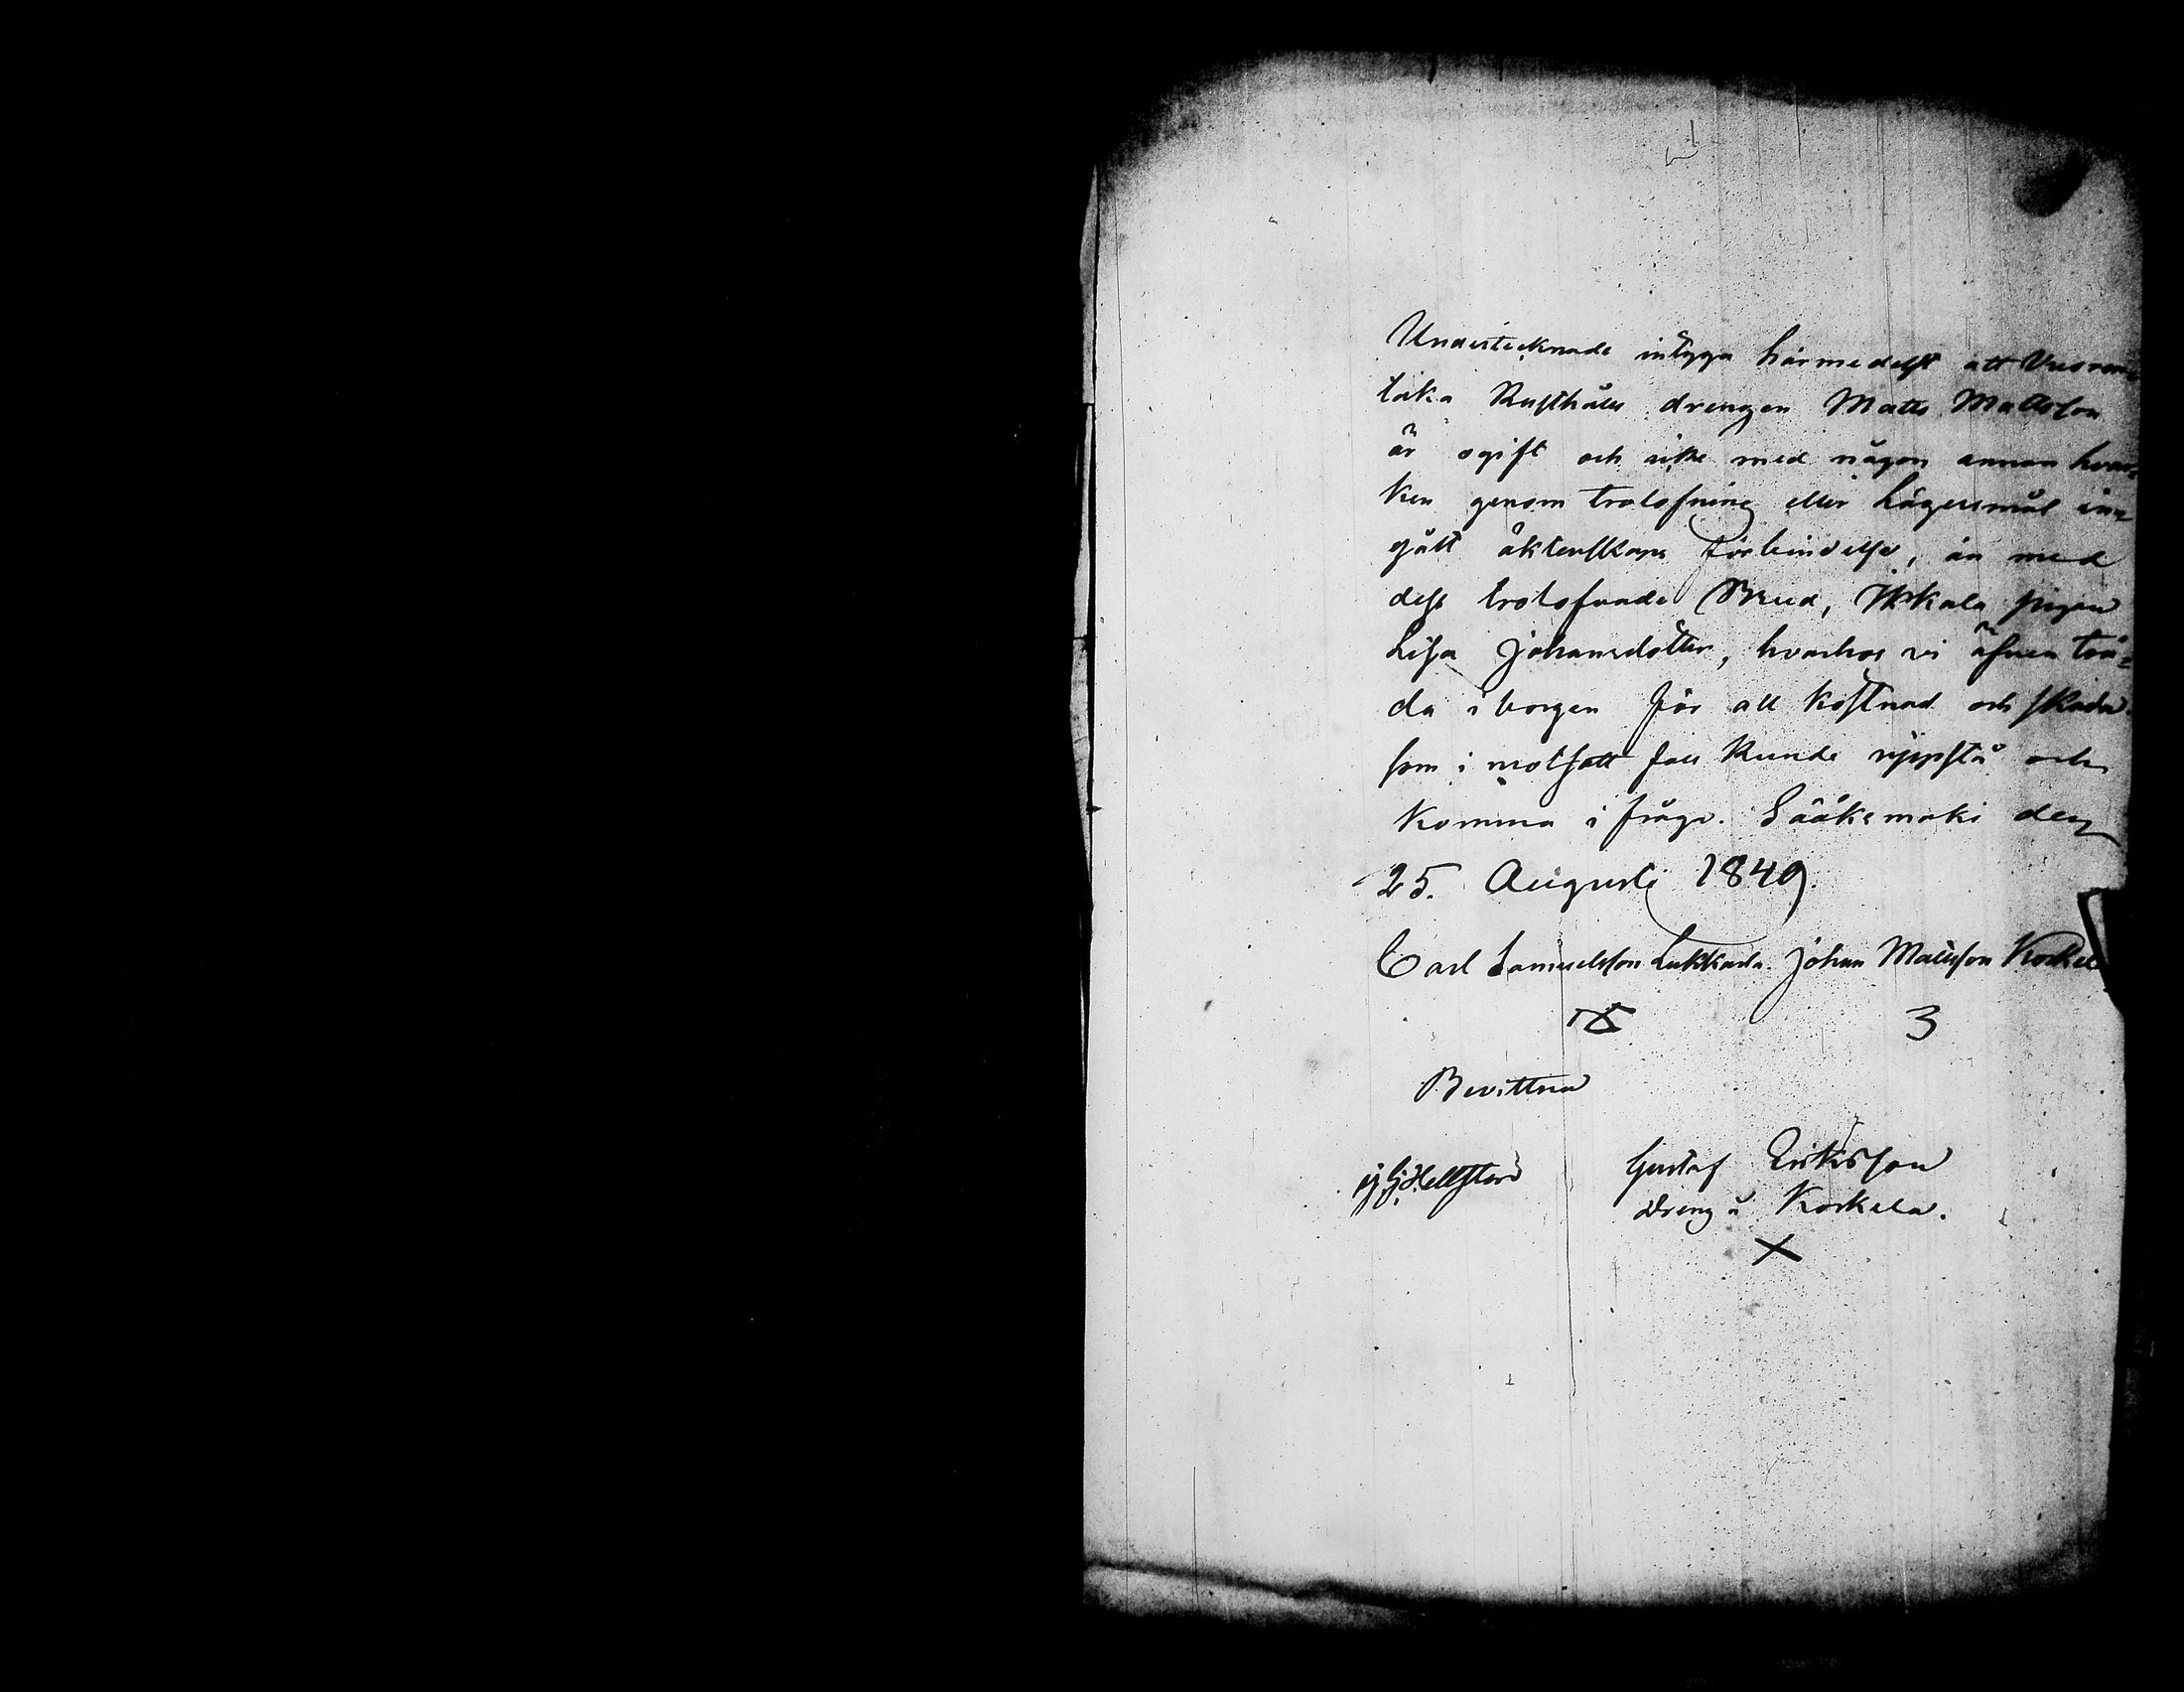 Undertecknade intyga härmedelst att Vuoren-
taka Rusthålls drengen Matts Mattsson
är ogift och icke med någon annan hvar-
ken genom trolofning eller Lägersmål in-
gått äktenskaps förbindelse, än med
dess trolofvade Brud, Ikkala pigan
Lisa Johansdotter, hvarhos vi äfven trä-
da i borgen för all kostnad och skada
som i motsatt fall kunde uppstå och
komma i fråga. Sääksmäki den
25. Augusti 1849.
Carl Samuelsson Lukkarla. Johan Mattsson Korkela
3
Bevittna
Hellsten Gustaf Eriksson
dreng å Korkela.
X